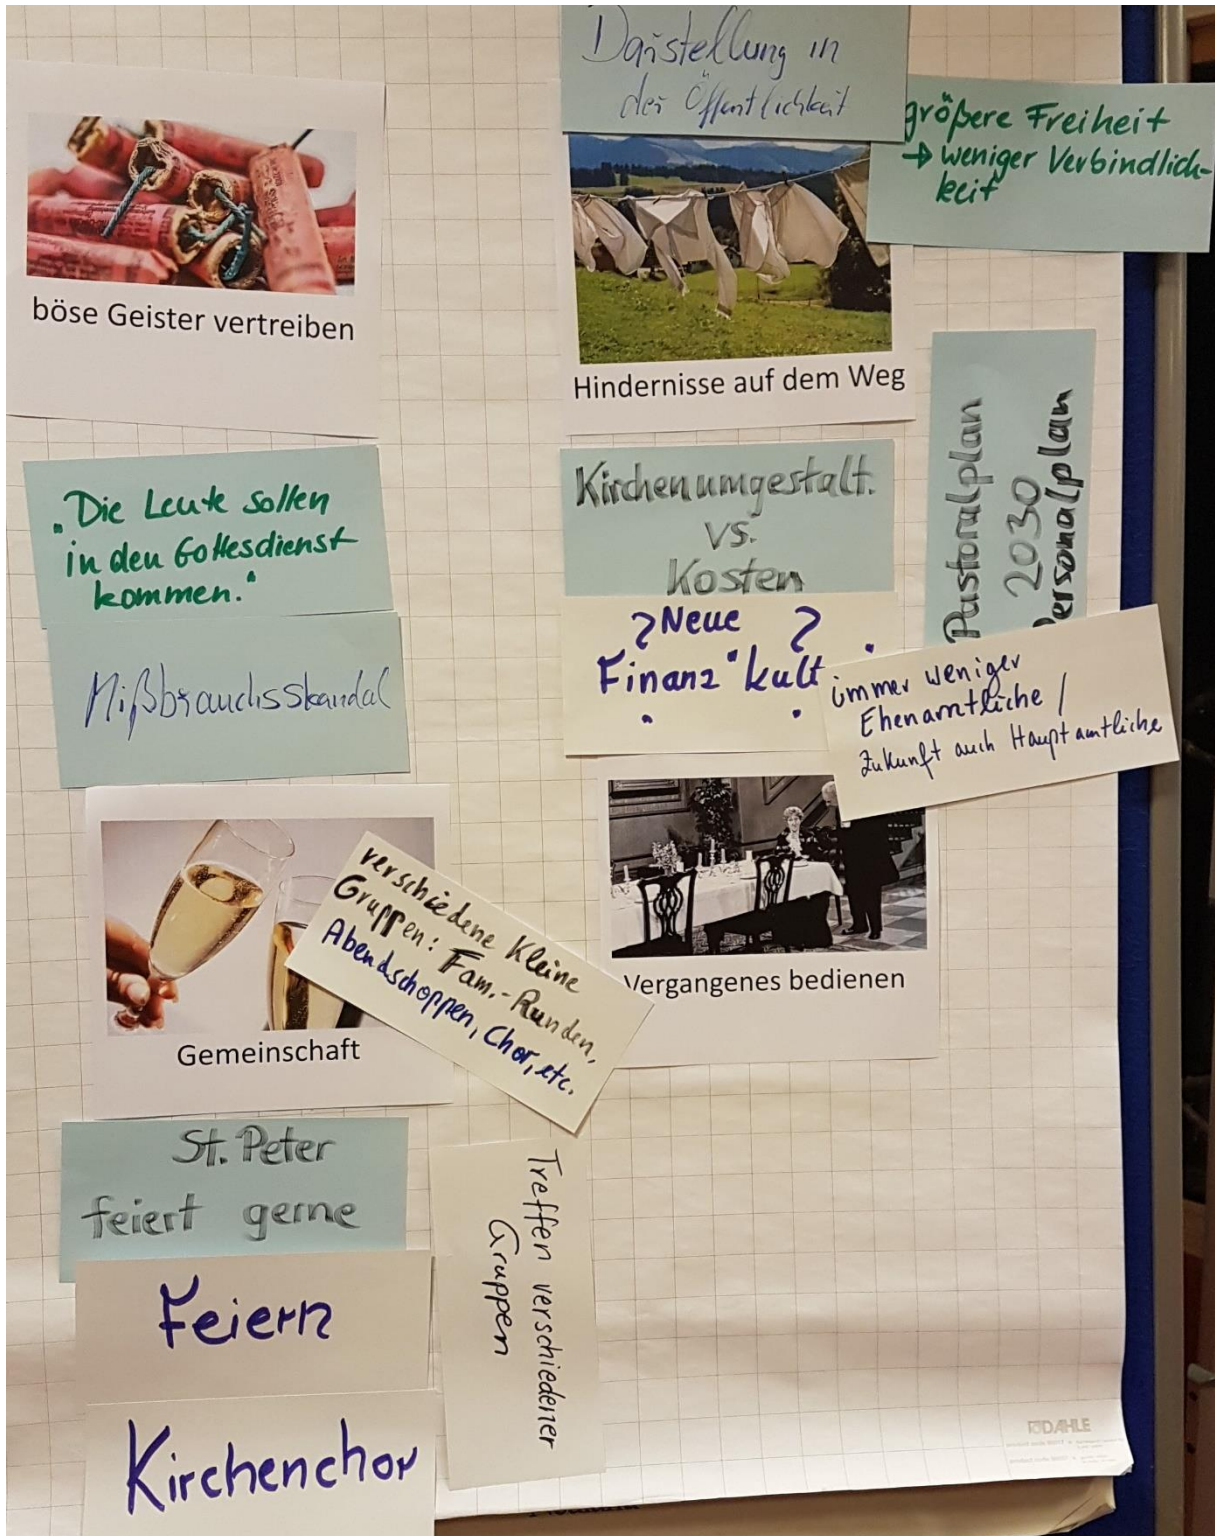 böse Geister vertreiben
„Die Leute sollen
in den Gottesdienst
kommen."
Mißbrauchsskandal
Gemeinschaft
verschiedene Kleine
Gruppen: Fam.-Runden,
Abendschoppen, Chor, etc.
St. Peter
feiert gerne
Feiern
Kirchenchor
Treffen verschiedener
Gruppen
Darstellung in
der Öffentlichkeit
größere Freiheit
→ weniger Verbindlich-
keit
Hindernisse auf dem Weg
Pastoralplan
2030
Personalplan
Kirchenumgestalt.
vs.
Kosten
? Neue ?
Finanz"kult
immer weniger
Ehrenamtliche /
Zukunft auch Hauptamtliche
Vergangenes bedienen
DAHLE